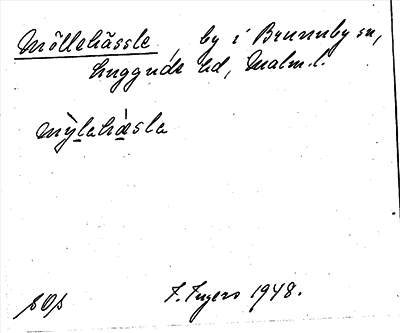 Möllehässle, by i Brunnby sn,
Luggude hd, Malm. l.
mỳlahæsla
sOp
I. Ingers 1948.